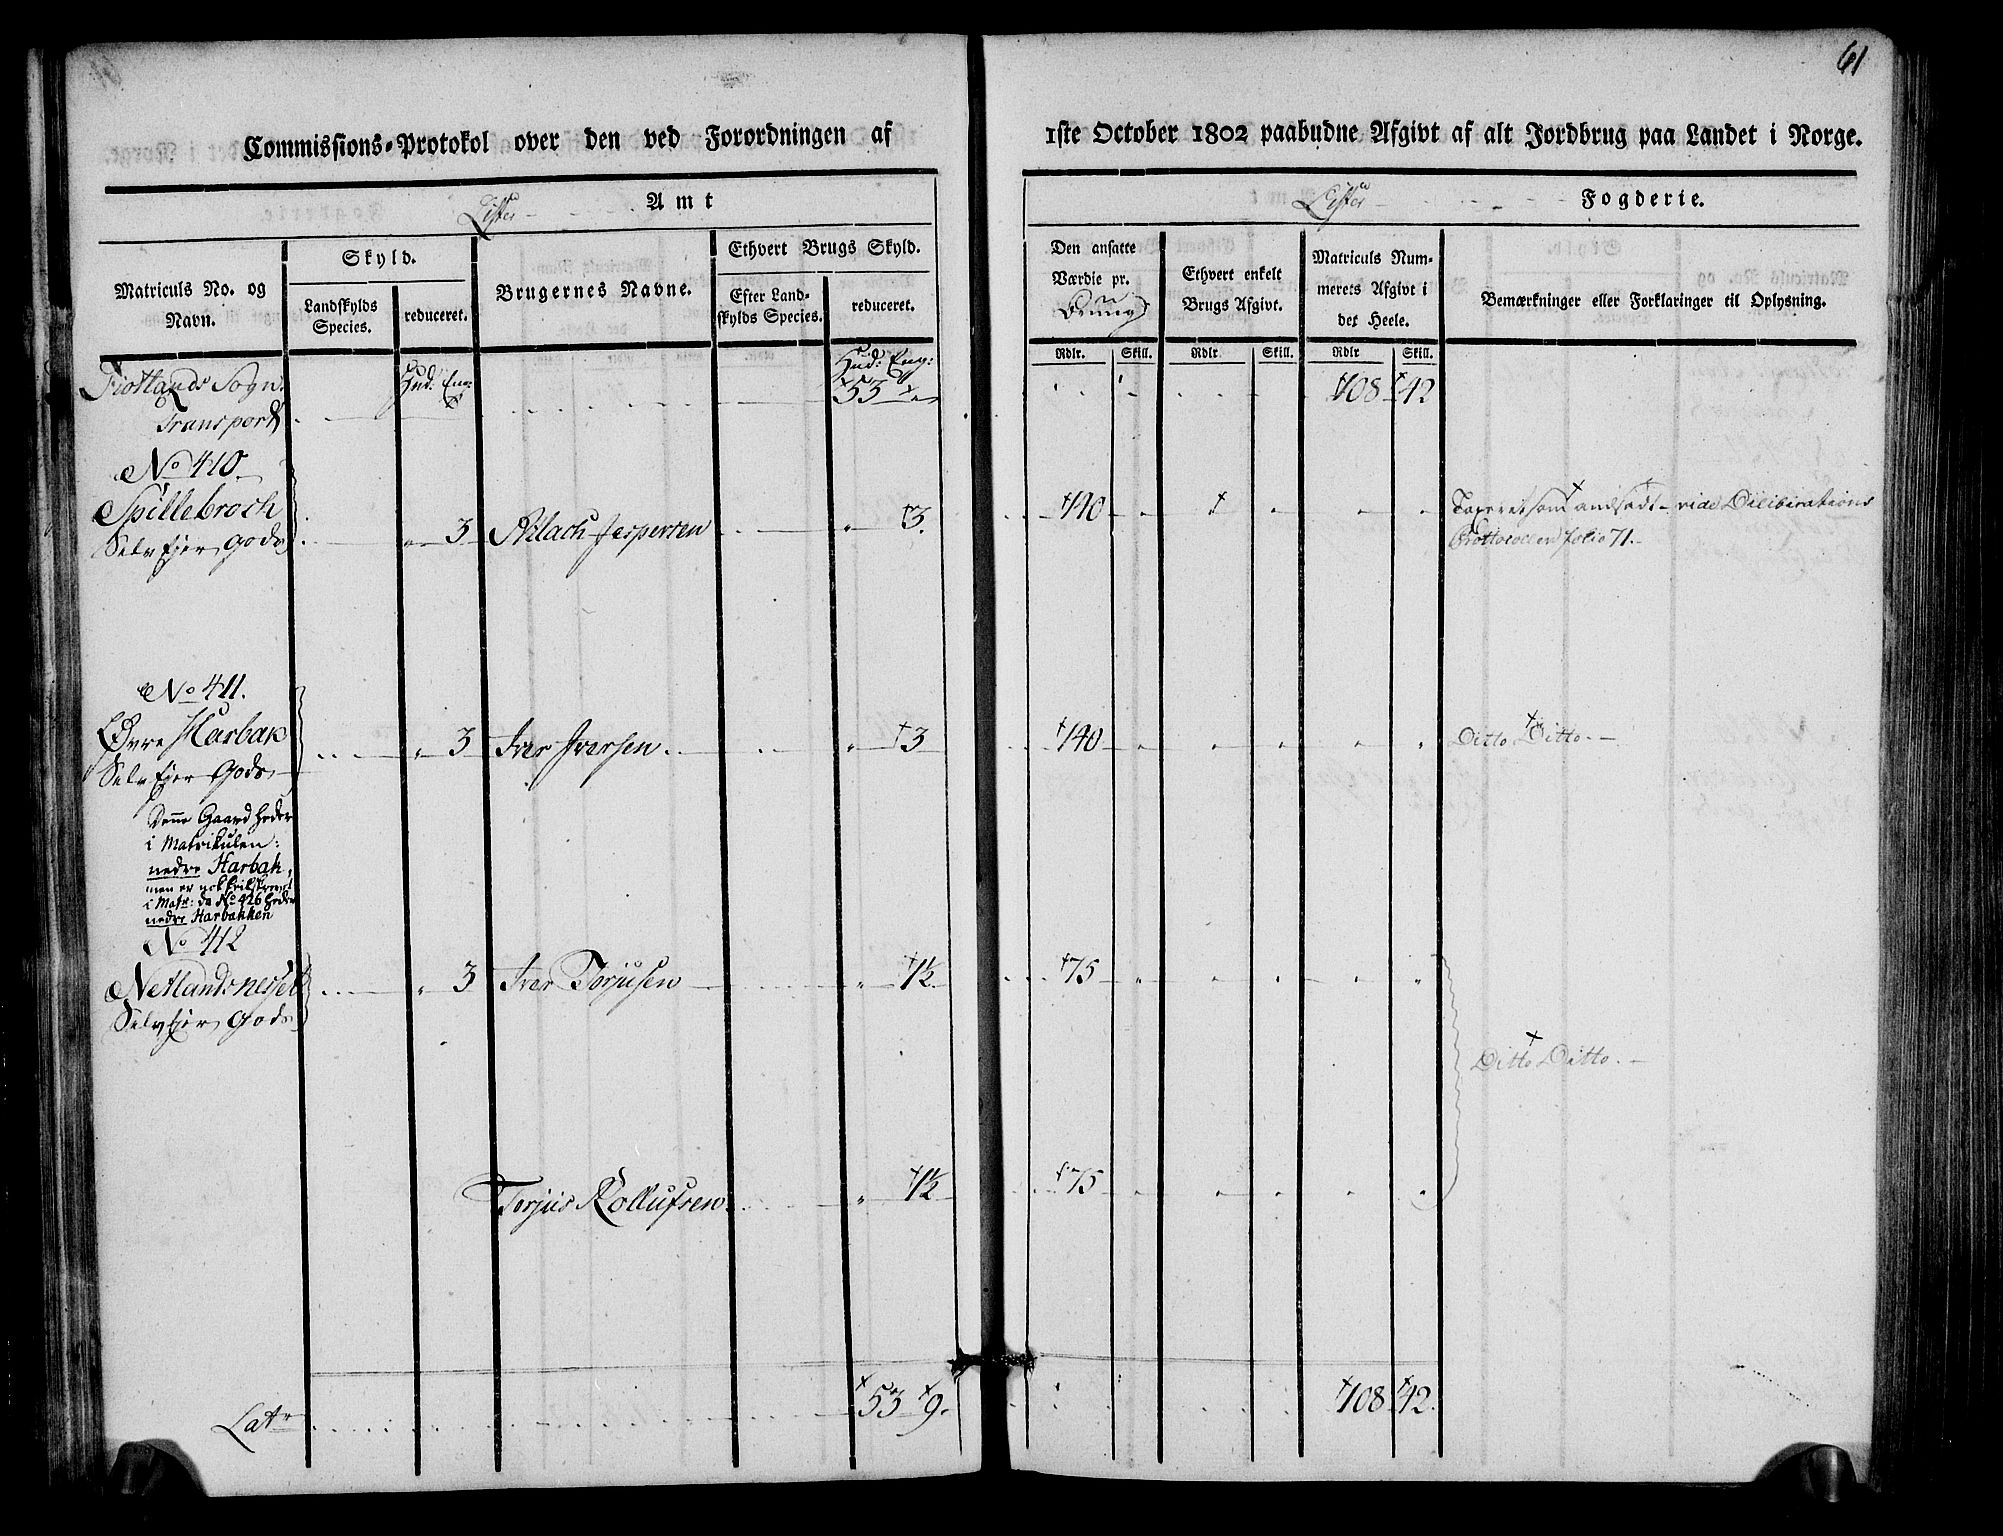 61
Commissions-Protokol over den ved Forordningen af 1ste October 1802 paabudne Afgivt af alt Jordbrug paa Landet i Norge.
Lister Amt
Lister Fogderie.
Matriculs No. og Navn.
Skyld.
Landskylds Species.
reduceret.
Brugernes Navne.
Ethvert Brugs Skyld.
Efter Landskylds Species.
reduceret.
Den ansatte Værdie pr.
Ethvert enkelt Brugs Afgivt.
Matriculs Nummerets Afgivt i det Heele.
Bemærkninger eller Forklaringer til Oplysning.
Rdlr. Skill. Rdlr. Skill. Rdlr. Skill.
Fiotlands Sogn Hud: Eng: Hud: Eng:
Transport 53 " 108 42
No 410
Spillebrock
Selv Ejer Gods " 3 Atlach Jespersen " 3 140 " Taxeret som andsadt vide Deliberations
Prottocollen folio 71.
No 411.
Øvre Harbak " 3 Iver Iversen. " 3 140 " Ditto Ditto.
Selv Ejer Gods
Denne Gaard heder
i Matrikulen:
nedre Harbak,
men er nok
i Matr: da No 426 heder
nedre Harbakken
No 412
Netlandsnesset " 3 Iver Torjusen " 1½ 75 "
Selv Ejer Gods
Ditto Ditto.
Torjus Rollufsen " 1½ 75 "
Latr 53 9. 108 42.